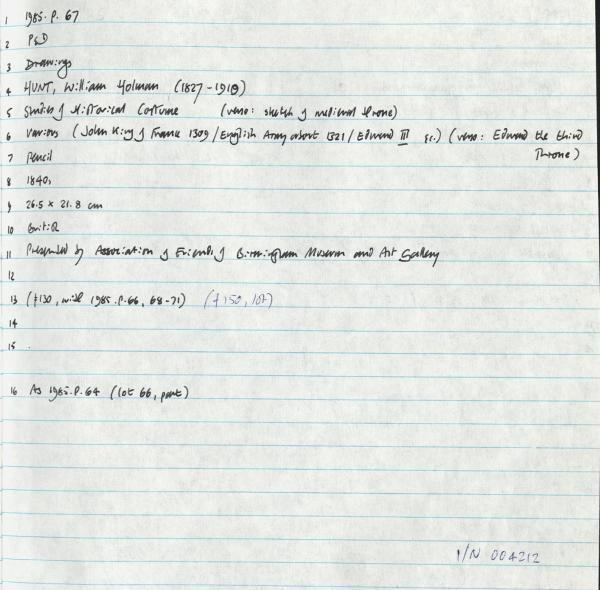 1 1985.P.67
2 P&D
3 Drawings
4 HUNT, William Holman (1827-1910)
5 Studies of Historical Costume (verso: sketch of medieval throne)
6 Various (John King of France 1309/English Army about 1321/Edward III &c.) (verso: Edward the third Throne)
7 Pencil
8 1840s
9 26.5 x 21.8 cm
10 British
11 Presented by Association of Friends of Birmingham Museum and Art Gallery
12
13 (£130, with 1985.P.66, 68-71) (£150, lot)
14
15 .
16 As 1985.P.64 (lot 66, part)
I/N 004212